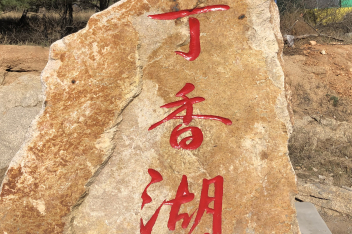 丁香湖